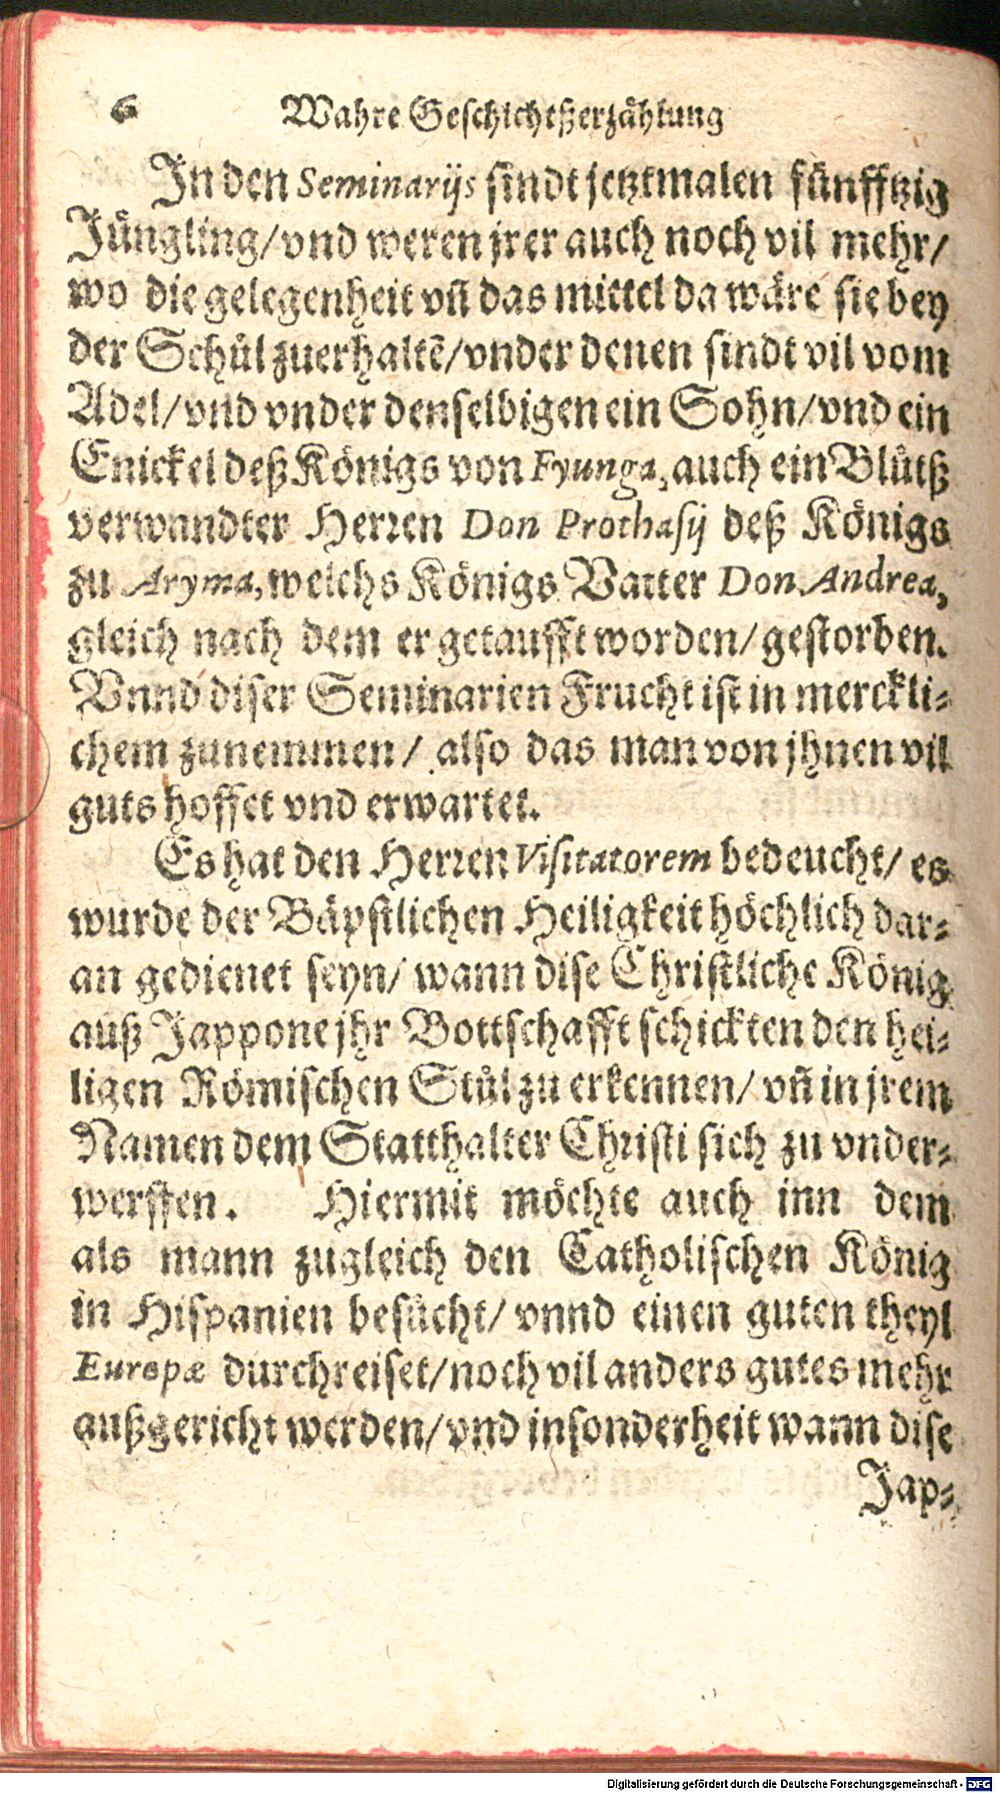 6 Wahre Geschichtßerzählung
In den Seminarijs sindt jetztmalen fünfftzig
Jüngling/vnd weren jrer auch noch vil mehr/
wo die gelegenheit vñ das mittel da wäre sie bey
der Schůl zuerhaltē/vnder denen sindt vil vom
Adel/vnd vnder denselbigen ein Sohn/vnd ein
Enickel deß Königs von Fyunga, auch ein Blůtß
verwandter Herren Don Prothasij deß Königs
zu Aryma, welchs Königs Vatter Don Andrea,
gleich nach dem er getaufft worden/gestorben.
Vnnd diser Seminarien Frucht ist in merckli-
chem zunemmen/ also das man von jhnen vil
guts hoffet vnd erwartet.
Es hat den Herren Visitatorem bedeucht/ es
wurde der Bäpstlichen Heiligkeit höchlich dar-
an gedienet seyn/ wann dise Christliche König
auß Jappone jhr Bottschafft schickten den hei-
ligen Römischen Stůl zu erkennen/ vñ in jrem
Namen dem Statthalter Christi sich zu vnder-
werffen. Hiermit möchte auch inn dem
als mann zugleich den Catholischen König
in Hispanien besůcht/ vnnd einen guten theyl
Europæ durchreiset/noch vil anders gutes mehr
außgericht werden/vnd insonderheit wann dise
Jap-
Digitalisierung gefördert durch die Deutsche Forschungsgemeinschaft - DFG